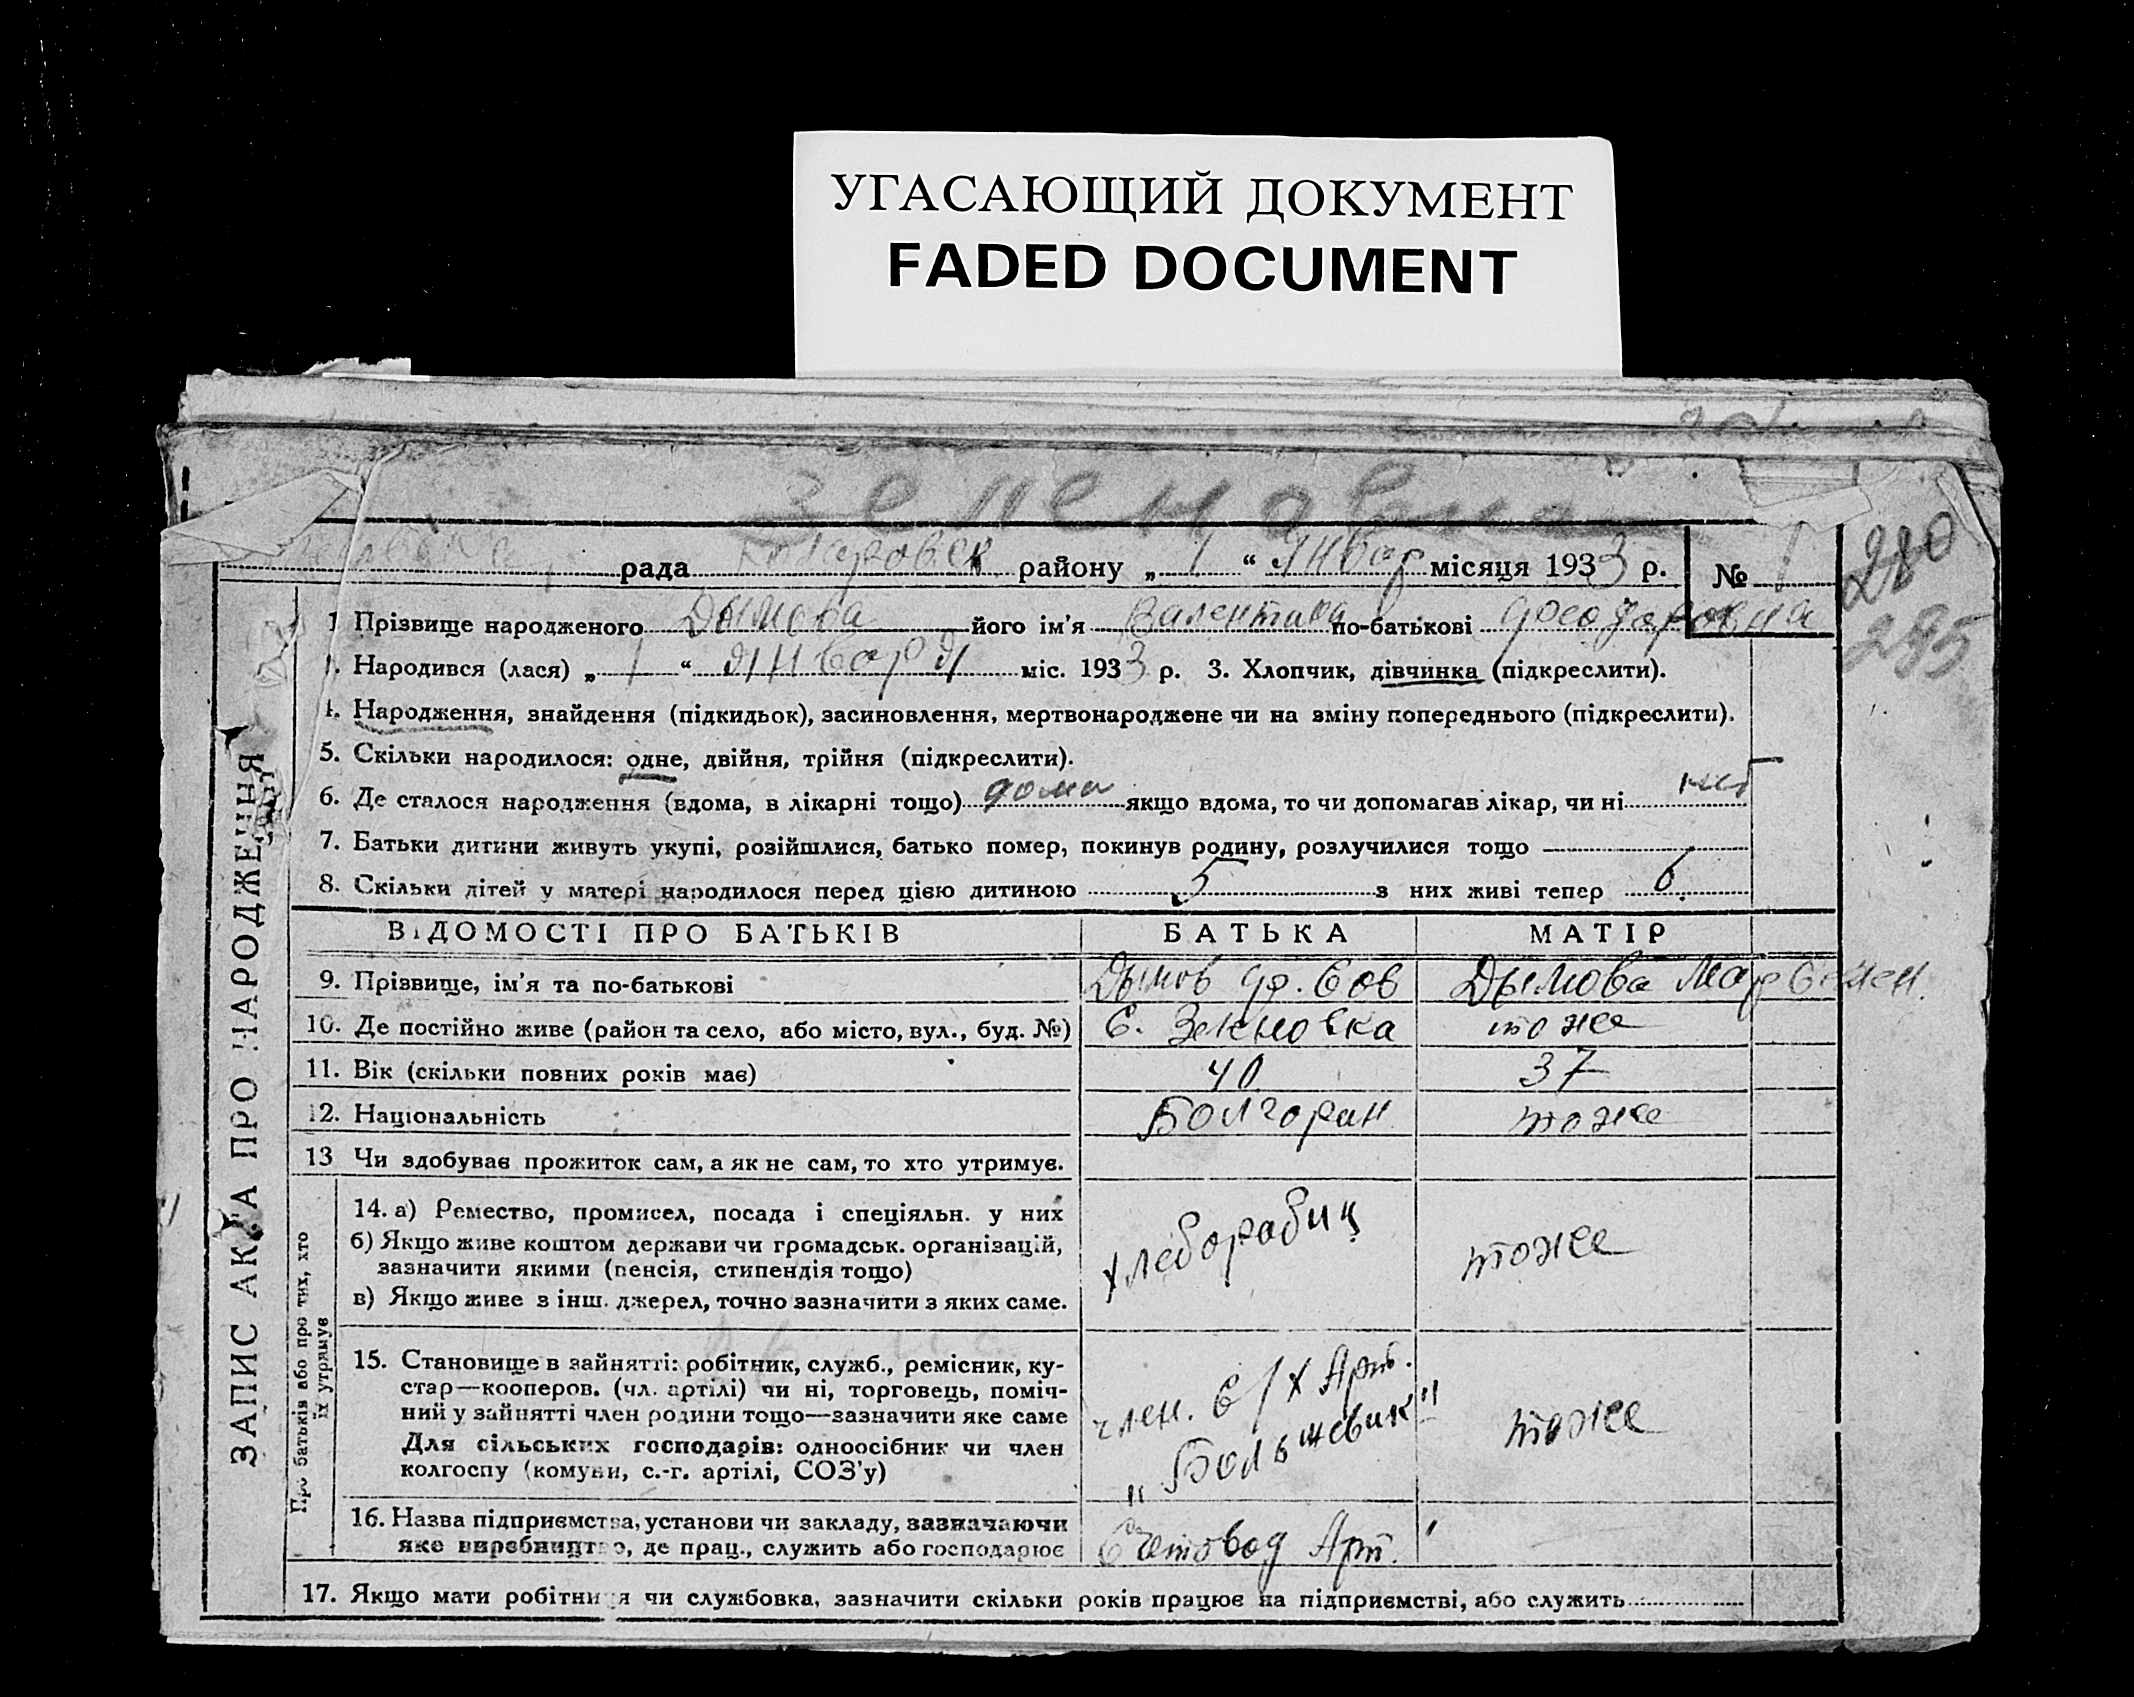 УГАСАЮЩИЙ ДОКУМЕНТ
FADED DOCUMENT
280
295
рада Коларовск району „ 1 “ Январ місяця 1933 р. № 1
1 Прізвище народженого Дымова його ім'я Валентина по-батькові Феодоровна
Народився (лася) „ 1 “ Января міс. 1933 р. 3. Хлопчик, дівчинка (підкреслити).
4. Народження, знайдення (підкидьок), засиновлення, мертвонароджене чи на зміну попереднього (підкреслити).
5. Скільки народилося: одне, двійня, трійня (підкреслити).
6. Де сталося народження (вдома, в лікарні тощо) дома якщо вдома, то чи допомагав лікар, чи ні нет
7. Батьки дитини живуть укупі, розійшлися, батько помер, покинув родину, розлучилися тощо
8. Скільки дітей у матері народилося перед цією дитиною 5 з них живі тепер 6
ВІДОМОСТІ ПРО БАТЬКІВ БАТЬКА МАТІР
9. Прізвище, ім'я та по-батькові Дымов Дымова
10. Де постійно живе (район та село, або місто, вул., буд. №) С. тоже
11. Вік (скільки повних років має) 40 37
12. Національність Болгорин тоже
13 Чи здобуває прожиток сам, а як не сам, то хто утримує.
14. а) Ремество, промисел, посада і спеціяльн. у них
б) Якщо живе коштом держави чи громадськ. організацій,
зазначити якими (пенсія, стипендія тощо)
в) Якщо живе з інш. джерел, точно зазначити з яких саме.
хлеборобиц тоже
15. Становище в зайнятті: робітник, служб., ремісник, ку-
стар—кооперов. (чл. артілі) чи ні, торговець, поміч-
ний у зайнятті член родини тощо—зазначити яке саме
Для сільських господарів: одноосібник чи член
колгоспу (комуни, с.-г. артілі, СОЗ'у)
член. С/Х Арт.
„Большевик" тоже
16. Назва підприємства, установи чи закладу, зазначаючи
яке виробництво, де прац., служить або господарює
Счетовод Арт.
17. Якщо мати робітниця чи службовка, зазначити скільки років працює на підприємстві, або служить
ЗАПИС АКТА ПРО НАРОДЖЕННЯ
Про батьків або про тих, хто
їх утримує